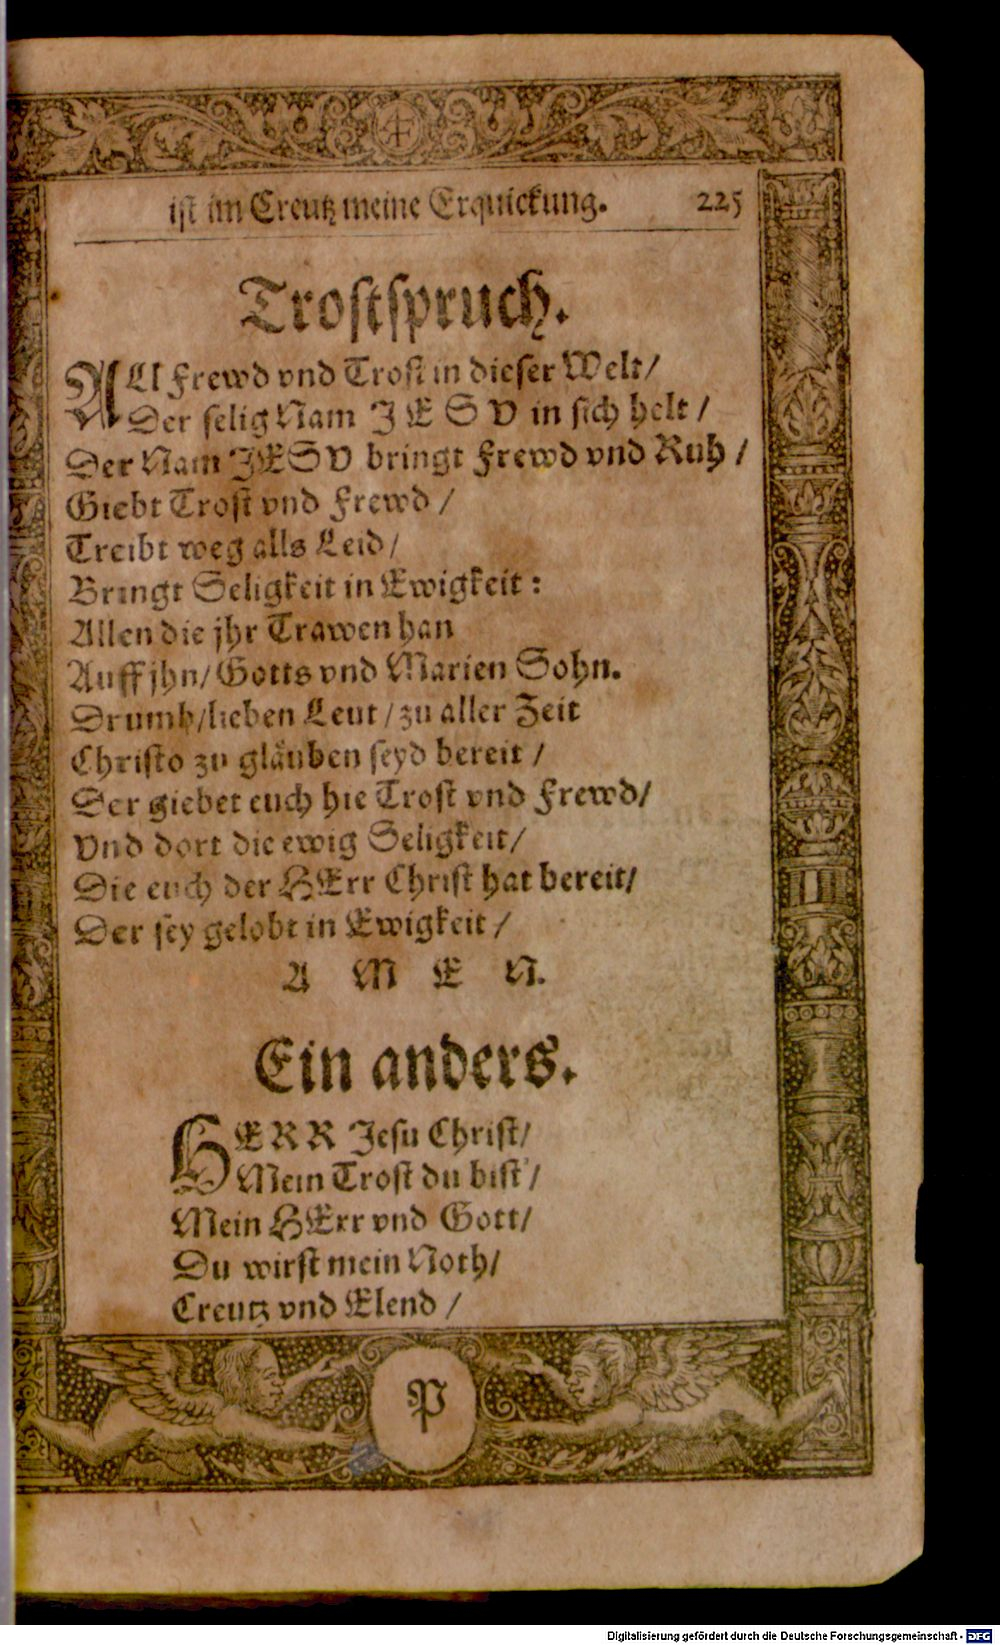 ist im Creutz meine Erquickung. 225
Trostspruch.
ALl Frewd vnd Trost in dieser Welt/
Der selig Nam JESV in sich helt/
Der Nam JESV bringt Frewd vnd Ruh/
Giebt Trost vnd Frewd/
Treibt weg alls Leid/
Bringt Seligkeit in Ewigkeit:
Allen die jhr Trawen han
Auff jhn/Gotts vnd Marien Sohn.
Drumb/lieben Leut/zu aller Zeit
Christo zu gläuben seyd bereit/
Der giebet euch hie Trost vnd Frewd/
Vnd dort die ewig Seligkeit/
Die euch der HErr Christ hat bereit/
Der sey gelobt in Ewigkeit/
A M E N.
Ein anders.
HERR Jesu Christ/
Mein Trost du bist/
Mein HErr vnd Gott/
Du wirst mein Noth/
Creutz vnd Elend/
P
Digitalisierung gefördert durch die Deutsche Forschungsgemeinschaft - DFG